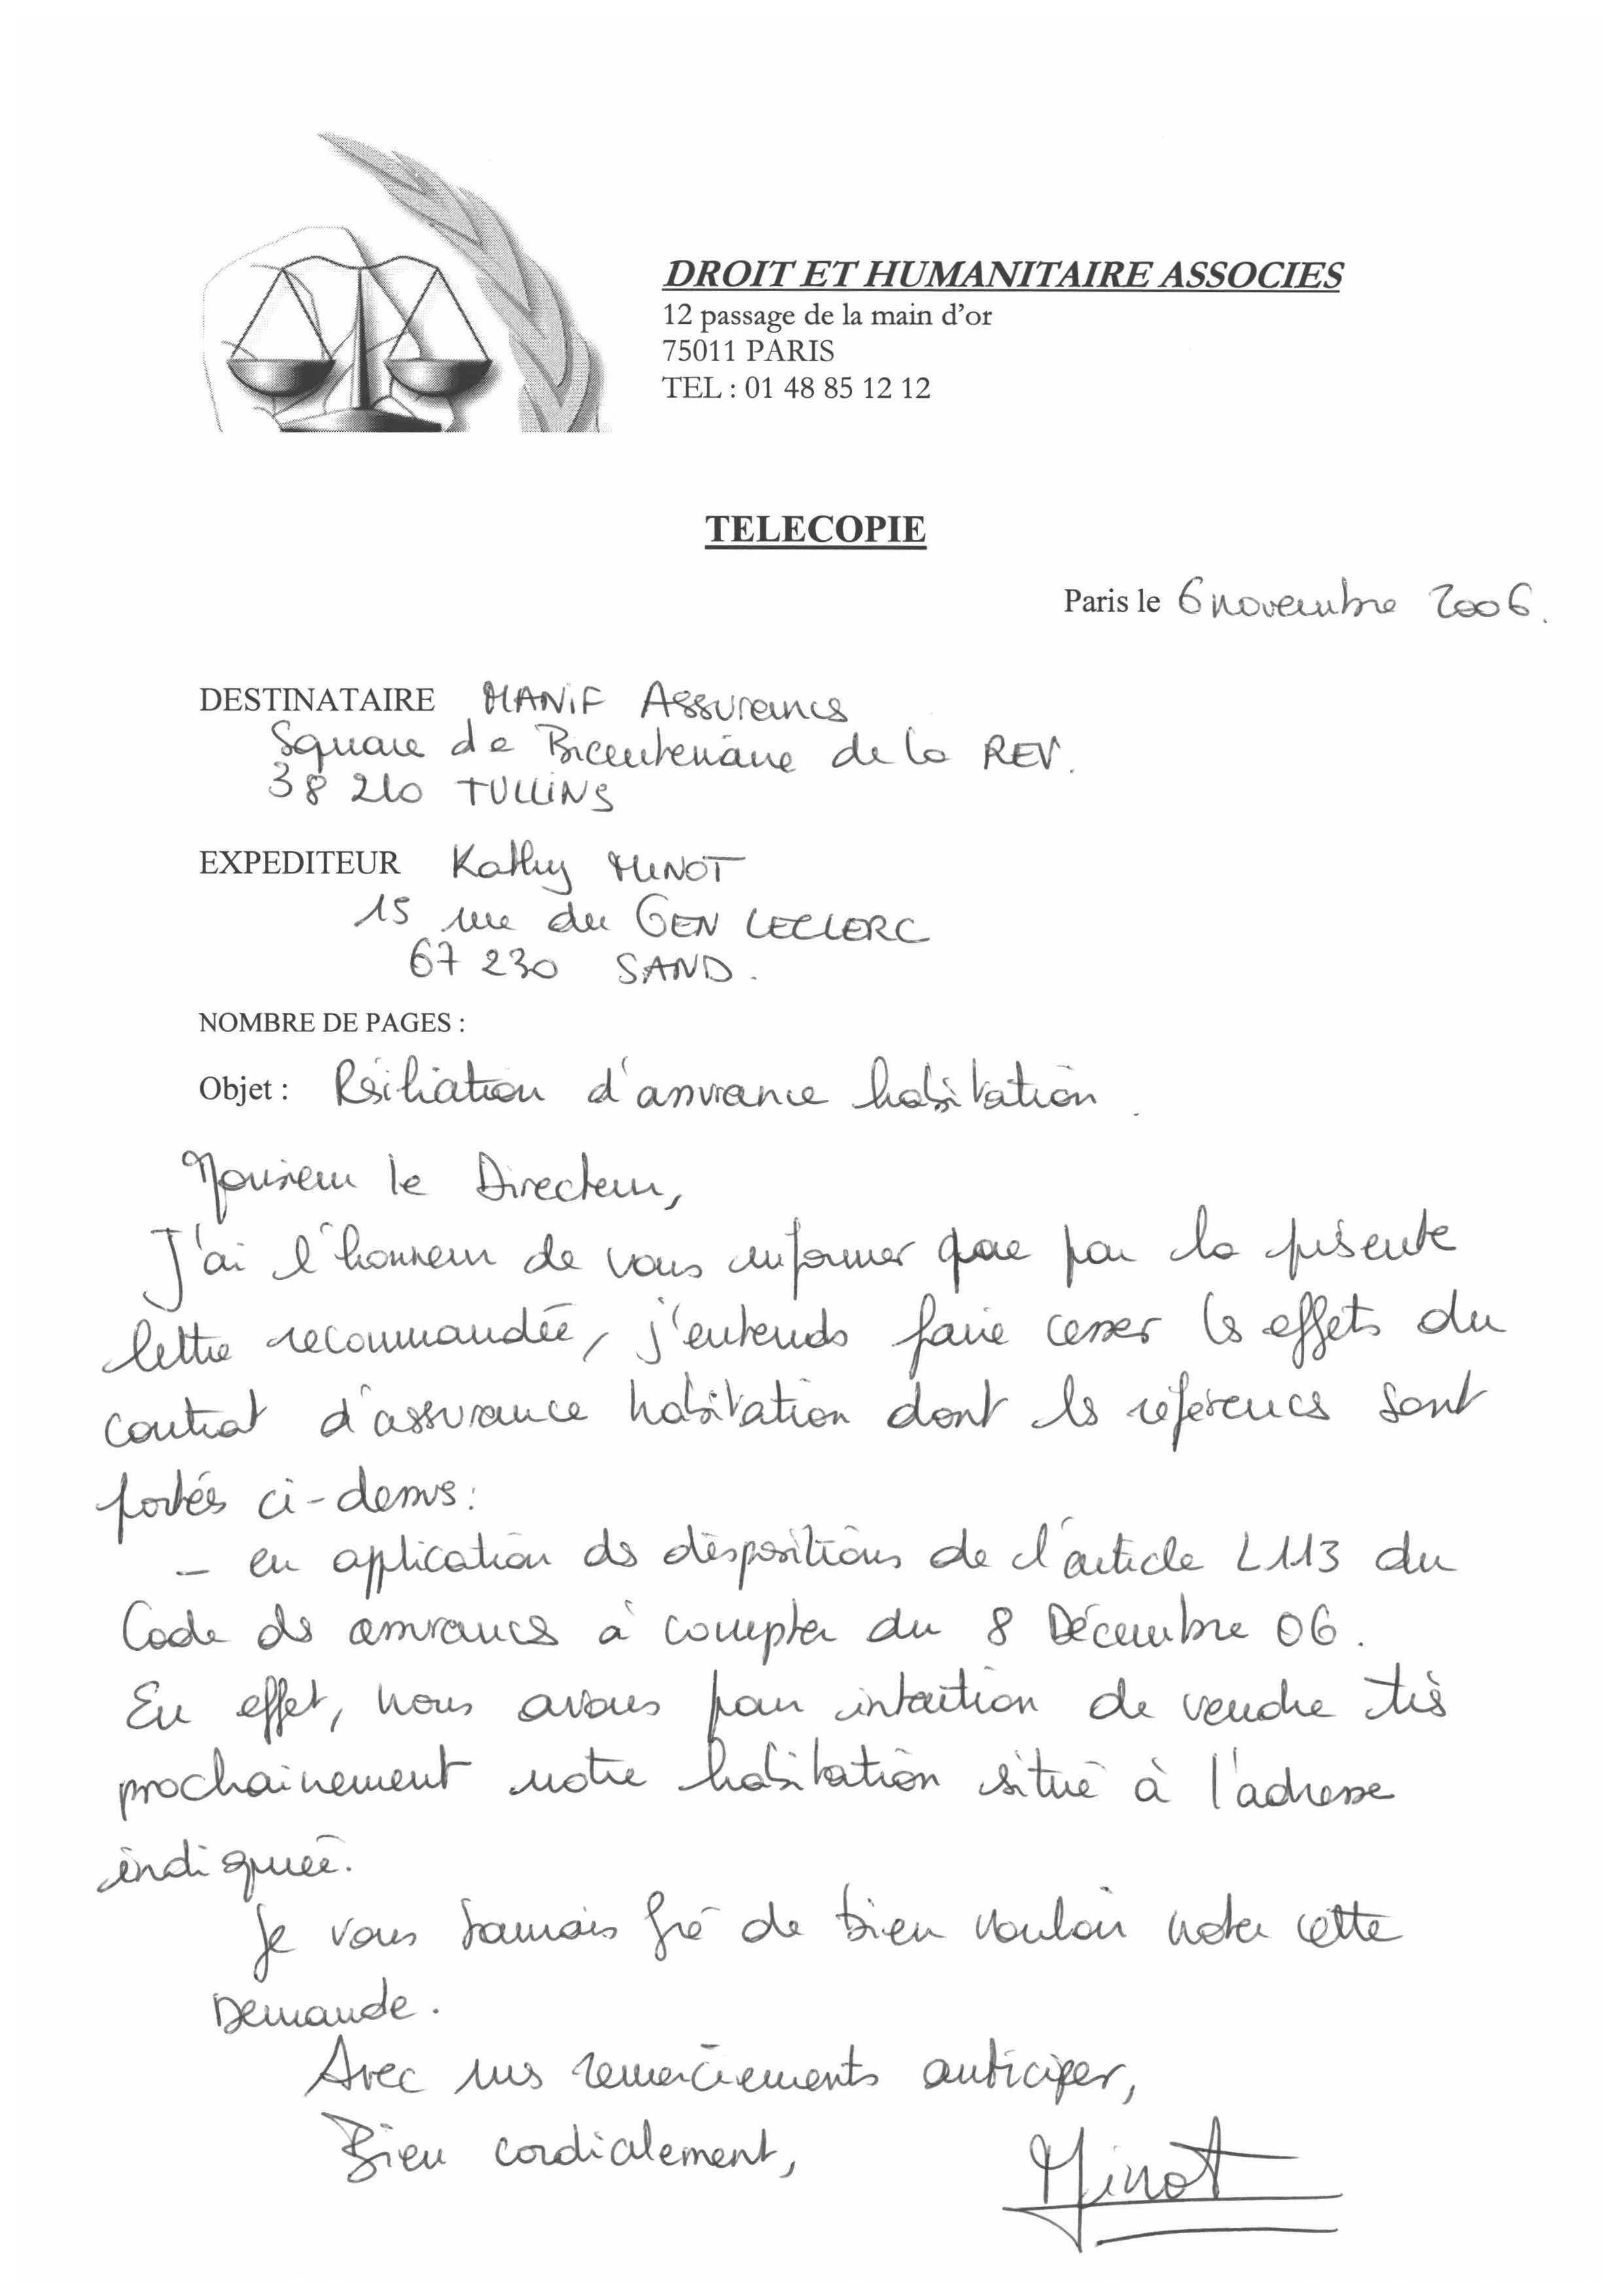 DROIT ET HUMANITAIRE ASSOCIES
12 passage de la main d'or
75011 PARIS
TEL : 01 48 85 12 12
TELECOPIE
Paris le 6 novembre 2006.
DESTINATAIRE MANIF Assurances
Square de Bicentenaire de la REV.
38 210 TULLINS
EXPEDITEUR Kathy MINOT
15 rue du GEN LECLERC
67 230 SAND.
NOMBRE DE PAGES :
Objet : Résiliation d'assurance habitation.
Monsieur le Directeur,
J'ai l'honneur de vous informer que par la présente
lettre recommandée, j'entends faire cesser les effets du
contrat d'assurance habitation dont les références sont
portés ci-dessus :
- en application des dispositions de l'article L113 du
Code des assurances à compter du 8 Décembre 06.
En effet, nous avons pour intention de vendre très
prochainement notre habitation situé à l'adresse
indiquée.
Je vous saurais gré de bien vouloir noter cette
Demande.
Avec mes remerciements anticiper,
Bien cordialement,
Minot